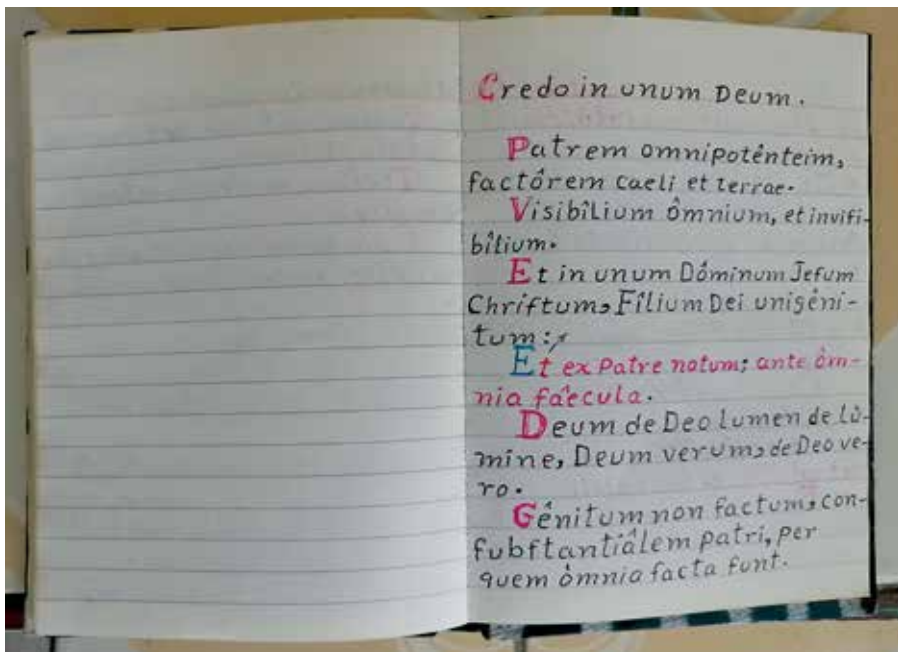 Credo in unum Deum.
Patrem omnipotênteim,
factôrem caeli et terrae.
Visibîlium ômnium, et invifi-
bîlium.
Et in unum Dôminum Jefum
Chriftum, Fîlium Dei unigêni-
tum:
Et ex Patre natum; ante ôm-
nia fáecula.
Deum de Deo lumen de lù-
mine, Deum verum, de Deo ve-
ro.
Gênitum non factum, con-
fubftantiâlem patri, per
quem òmnia facta funt.